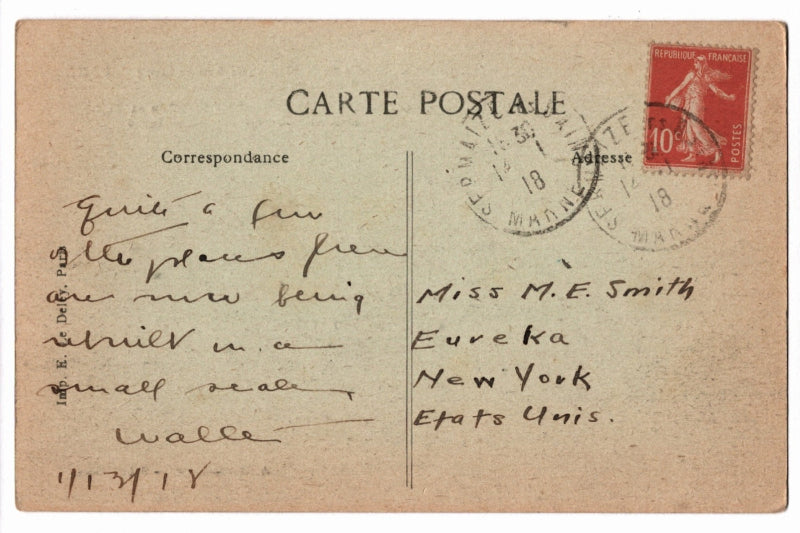 CARTE POSTALE
Correspondance
Adresse
REPUBLIQUE FRANÇAISE
10c
POSTES
SERMAIZE
18
MARNE
SERMAIZE
18
MARNE
Quite a few
the places here
are now being
rebuilt in a
small scale
Walter
1/13/18
Miss M.E. Smith
Eureka
New York
Etats Unis.
Imp. E. Le Deley, Paris